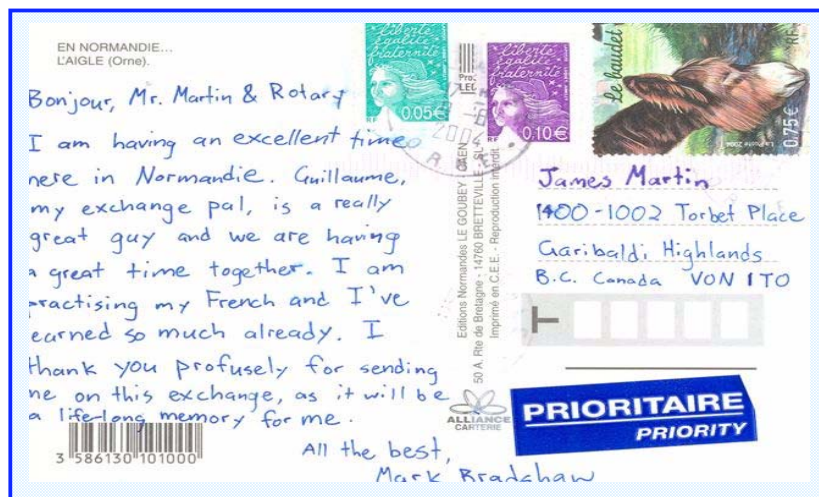 EN NORMANDIE...
L'AIGLE (Orne).
Bonjour, Mr. Martin & Rotary
I am having an excellent time
here in Normandie. Guillaume,
my exchange pal, is a really
great guy and we are having
a great time together. I am
practising my French and I've
earned so much already. I
thank you profusely for sending
me on this exchange, as it will be
a life-long memory for me.
All the best,
Mark Bradshaw
3 586130 101000
liberté
égalité
fraternité
0,05€
liberté
égalité
fraternité
0,10€
Le baudet
0,75€
RF
La Poste 2004
2004
Editions Normandes LE GOUBEY
50 A, Rte de Bretagne - 14760 BRETTEVILLE
Imprimé en C.E.E. - Reproduction Interdit
ALLIANCE
CARTERIE
James Martin
1400-1002 Torbet Place
Garibaldi Highlands
B.C. Canada V0N 1T0
PRIORITAIRE
PRIORITY